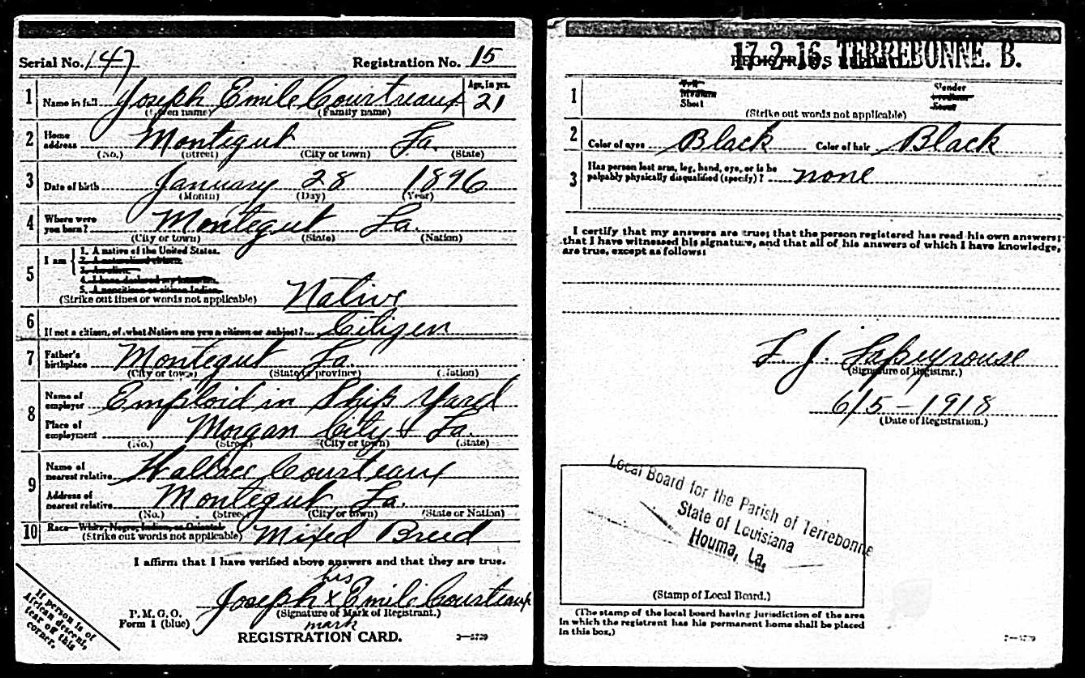 Serial No. 147 Registration No. 15
1 Name in full Joseph Emile Courteaux Age, in yrs. 21
(Given name) (Family name)
2 Home address Montegut La.
(No.) (Street) (City or town) (State)
3 Date of birth January 28 1896
(Month) (Day) (Year)
4 Where were you born? Montegut La.
(City or town) (State) (Nation)
5 I am
1. A native of the United States.
2. A naturalized citizen.
3. An alien.
(Strike out lines or words not applicable) Native
6 If not a citizen, of what Nation are you a citizen or subject? Citizen
7 Father's birthplace Montegut La.
(City or town) (State or province) (Nation)
8 Name of employer Emploid in Ship Yard
Place of employment Morgan City La.
(No.) (Street) (City or town) (State)
9 Name of nearest relative Courteaux
Address of nearest relative Montegut La.
(No.) (Street) (City or town) (State or Nation)
10 Race—White, Negro, Indian, or Oriental Mixed Breed
(Strike out words not applicable)
I affirm that I have verified above answers and that they are true.
his
Joseph x Emile Courteaux
(Signature or Mark of Registrant.)
mark
P. M. G. O.
Form 1 (blue)
REGISTRATION CARD.
If person is of
African descent,
tear off this
corner.
17-2-16. TERREBONNE. B.
1 Tall Medium Short Slender Medium Stout
(Strike out words not applicable)
2 Color of eyes Black Color of hair Black
3 Has person lost arm, leg, hand, eye, or is he
palpably physically disqualified (specify)? none
I certify that my answers are true; that the person registered has read his own answers;
that I have witnessed his signature, and that all of his answers of which I have knowledge,
are true, except as follows:
Lapeyrouse
(Signature of Registrar.)
6/5-1918
(Date of Registration.)
Local Board for the Parish of Terrebonne
State of Louisiana
Houma, La.
(Stamp of Local Board.)
(The stamp of the local board having jurisdiction of the area
in which the registrant has his permanent home shall be placed
in this box.)